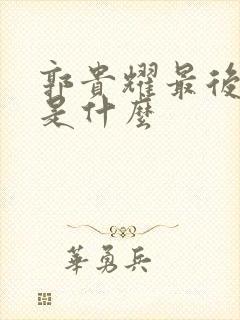 郭貴耀最後
是什麼
華勇兵